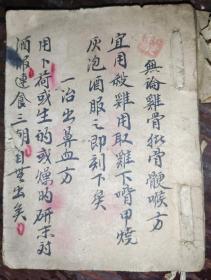 無論雞骨狗骨骾喉方
宜用殺雞用取雞下嘴甲燒
灰泡酒服之即刻下矣
一治出鼻血方
用卜荷或生的或燥的研末对
酒服連食三朝自無出矣